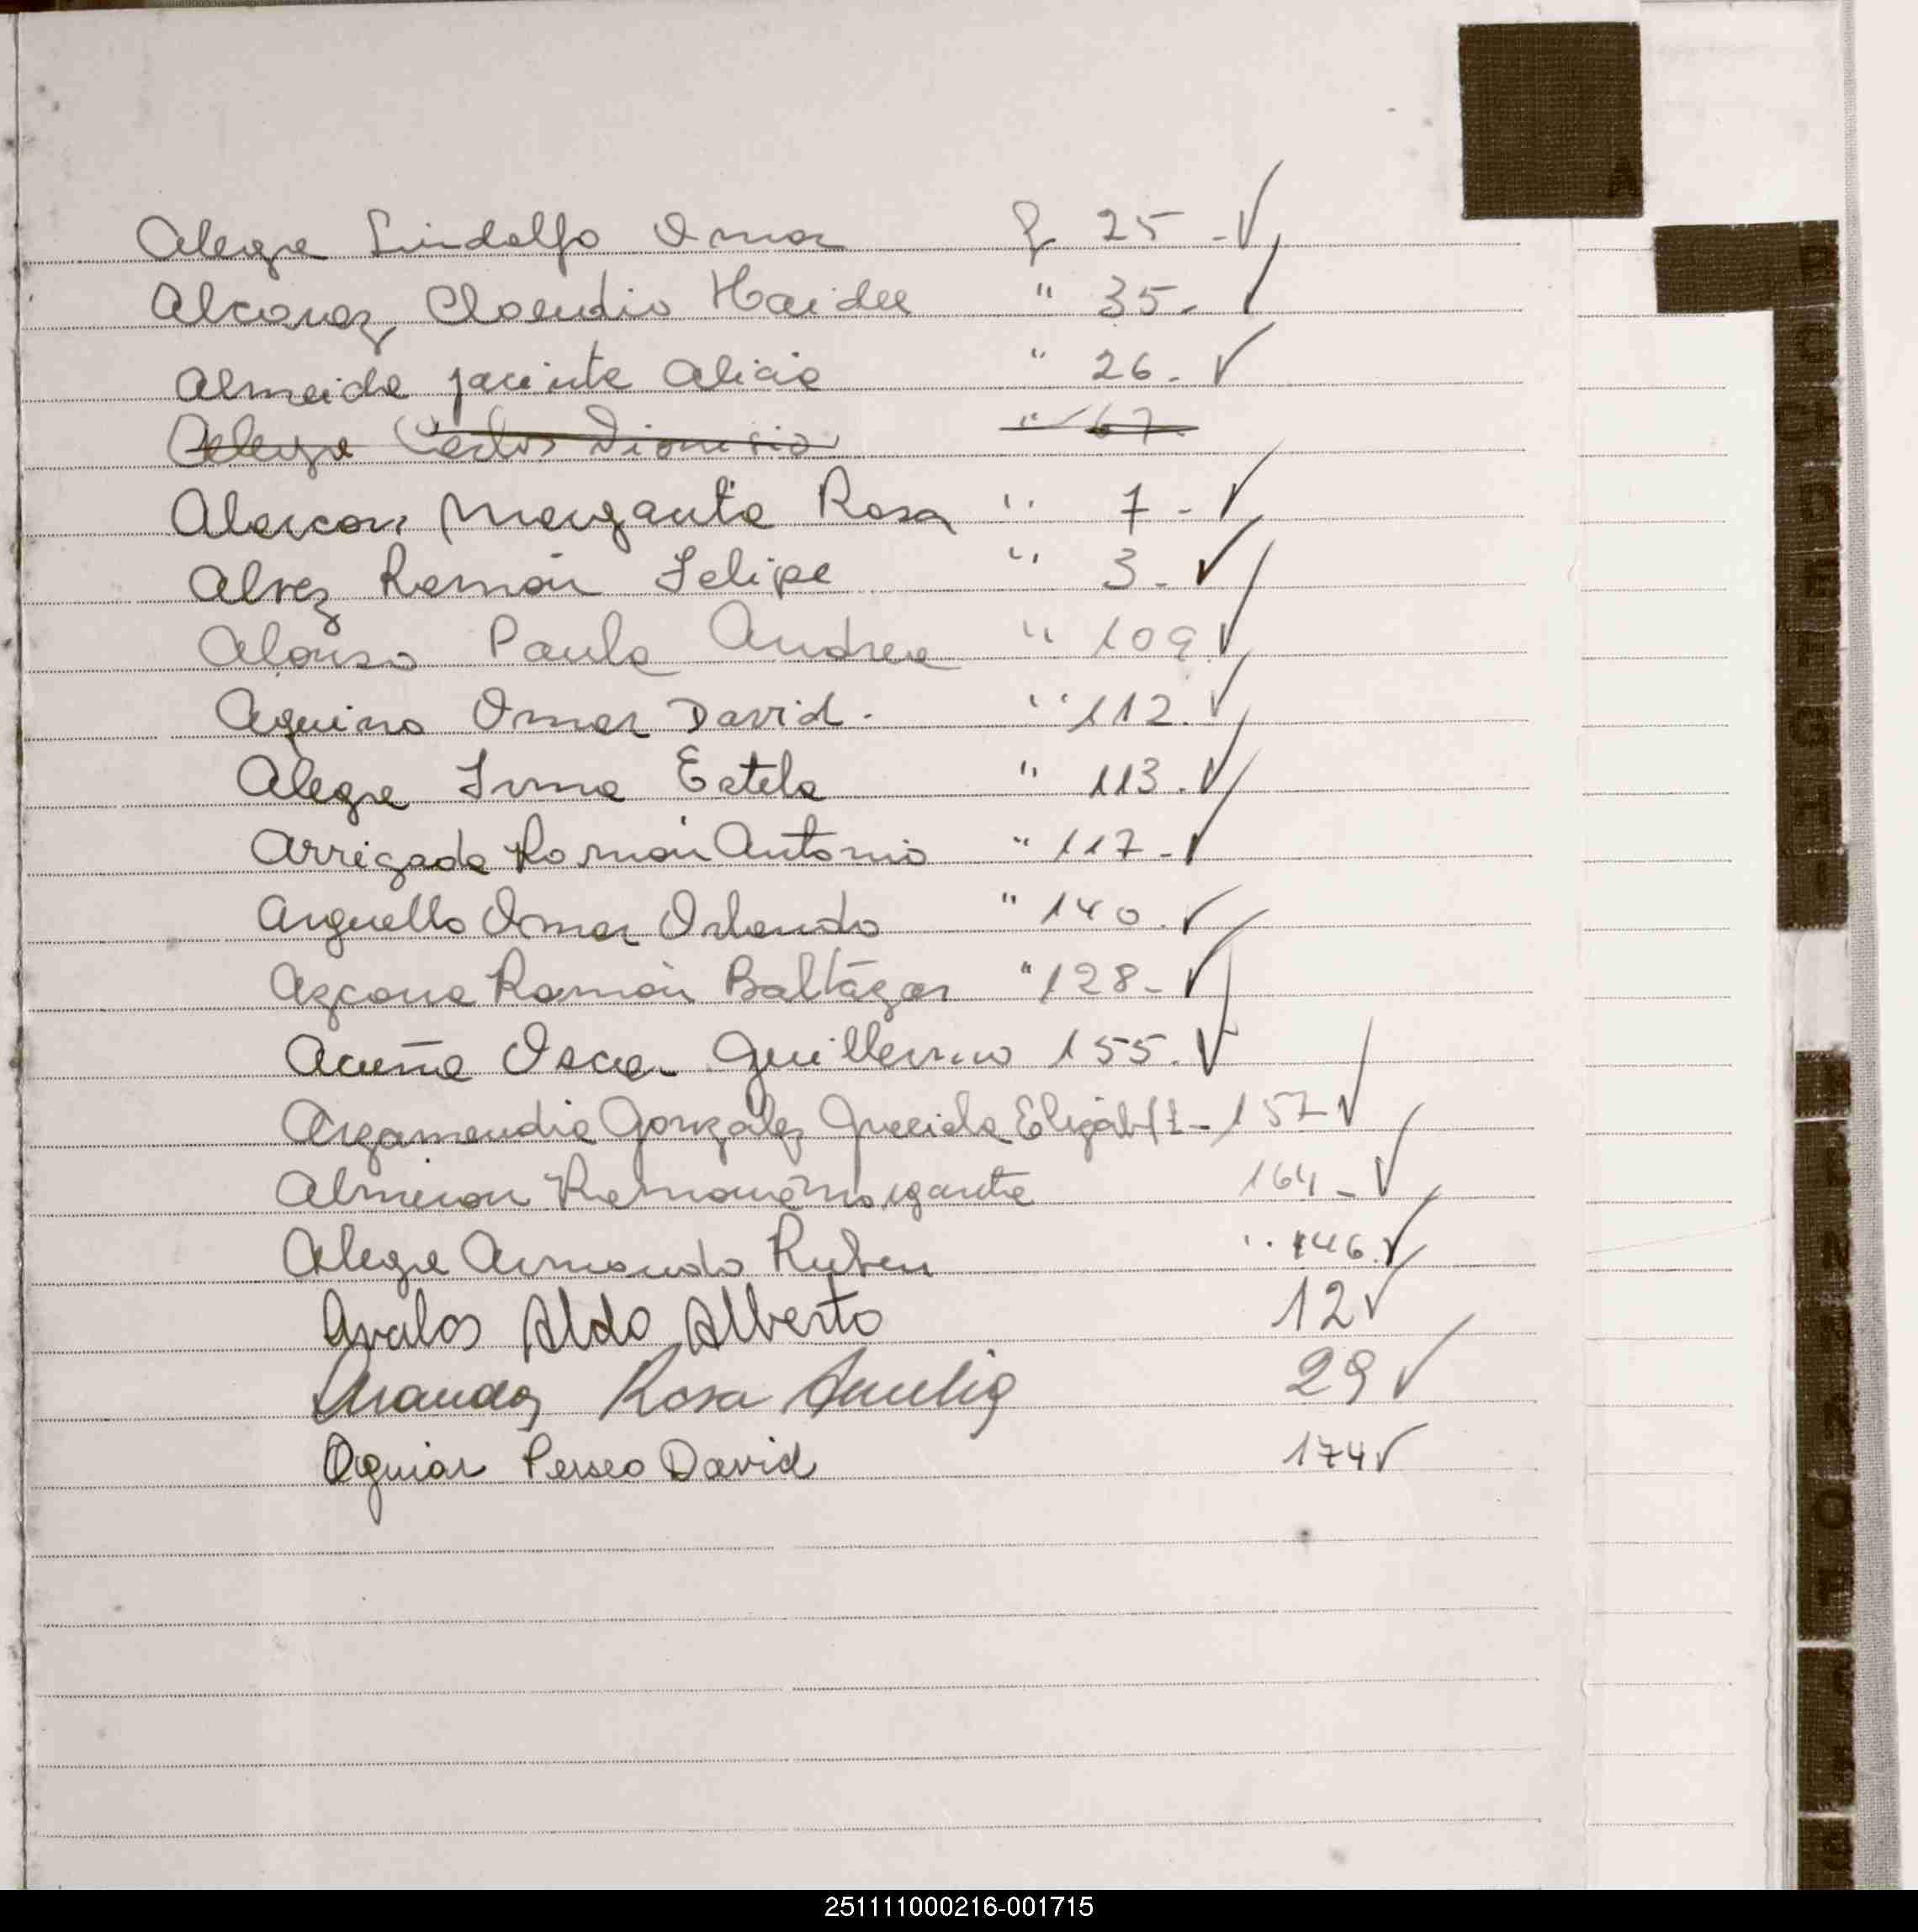 Alegre Lindolfo Omar f 25 - ✓
Alcaraz Claudio Haidee " 35 - ✓
Almeida Jacinta Alicia " 26 - ✓
Alegre Carlos Dionisio " 67 -
Alarcon Margarita Rosa " 7 - ✓
Alvez Ramón Felipe " 3 - ✓
Alonso Paula Andrea " 109 ✓
Aquino Omar David - " 112. ✓
Alegre Irma Estela " 113. ✓
Arrigada Román Antonio " 117 - ✓
Arguello Omar Orlando " 140. ✓
Azcona Ramón Baltázar " 128 - ✓
Acuña Oscar Guillermo 155. ✓
Argamendia González Graciela 157 ✓
Almiron Ramona Margarita 164 - ✓
Alegre Armando Ruben " 146. ✓
Avalos Aldo Alberto 12 ✓
Rosa 29 ✓
Aguiar Perseo David 174 ✓
A
251111000216-001715